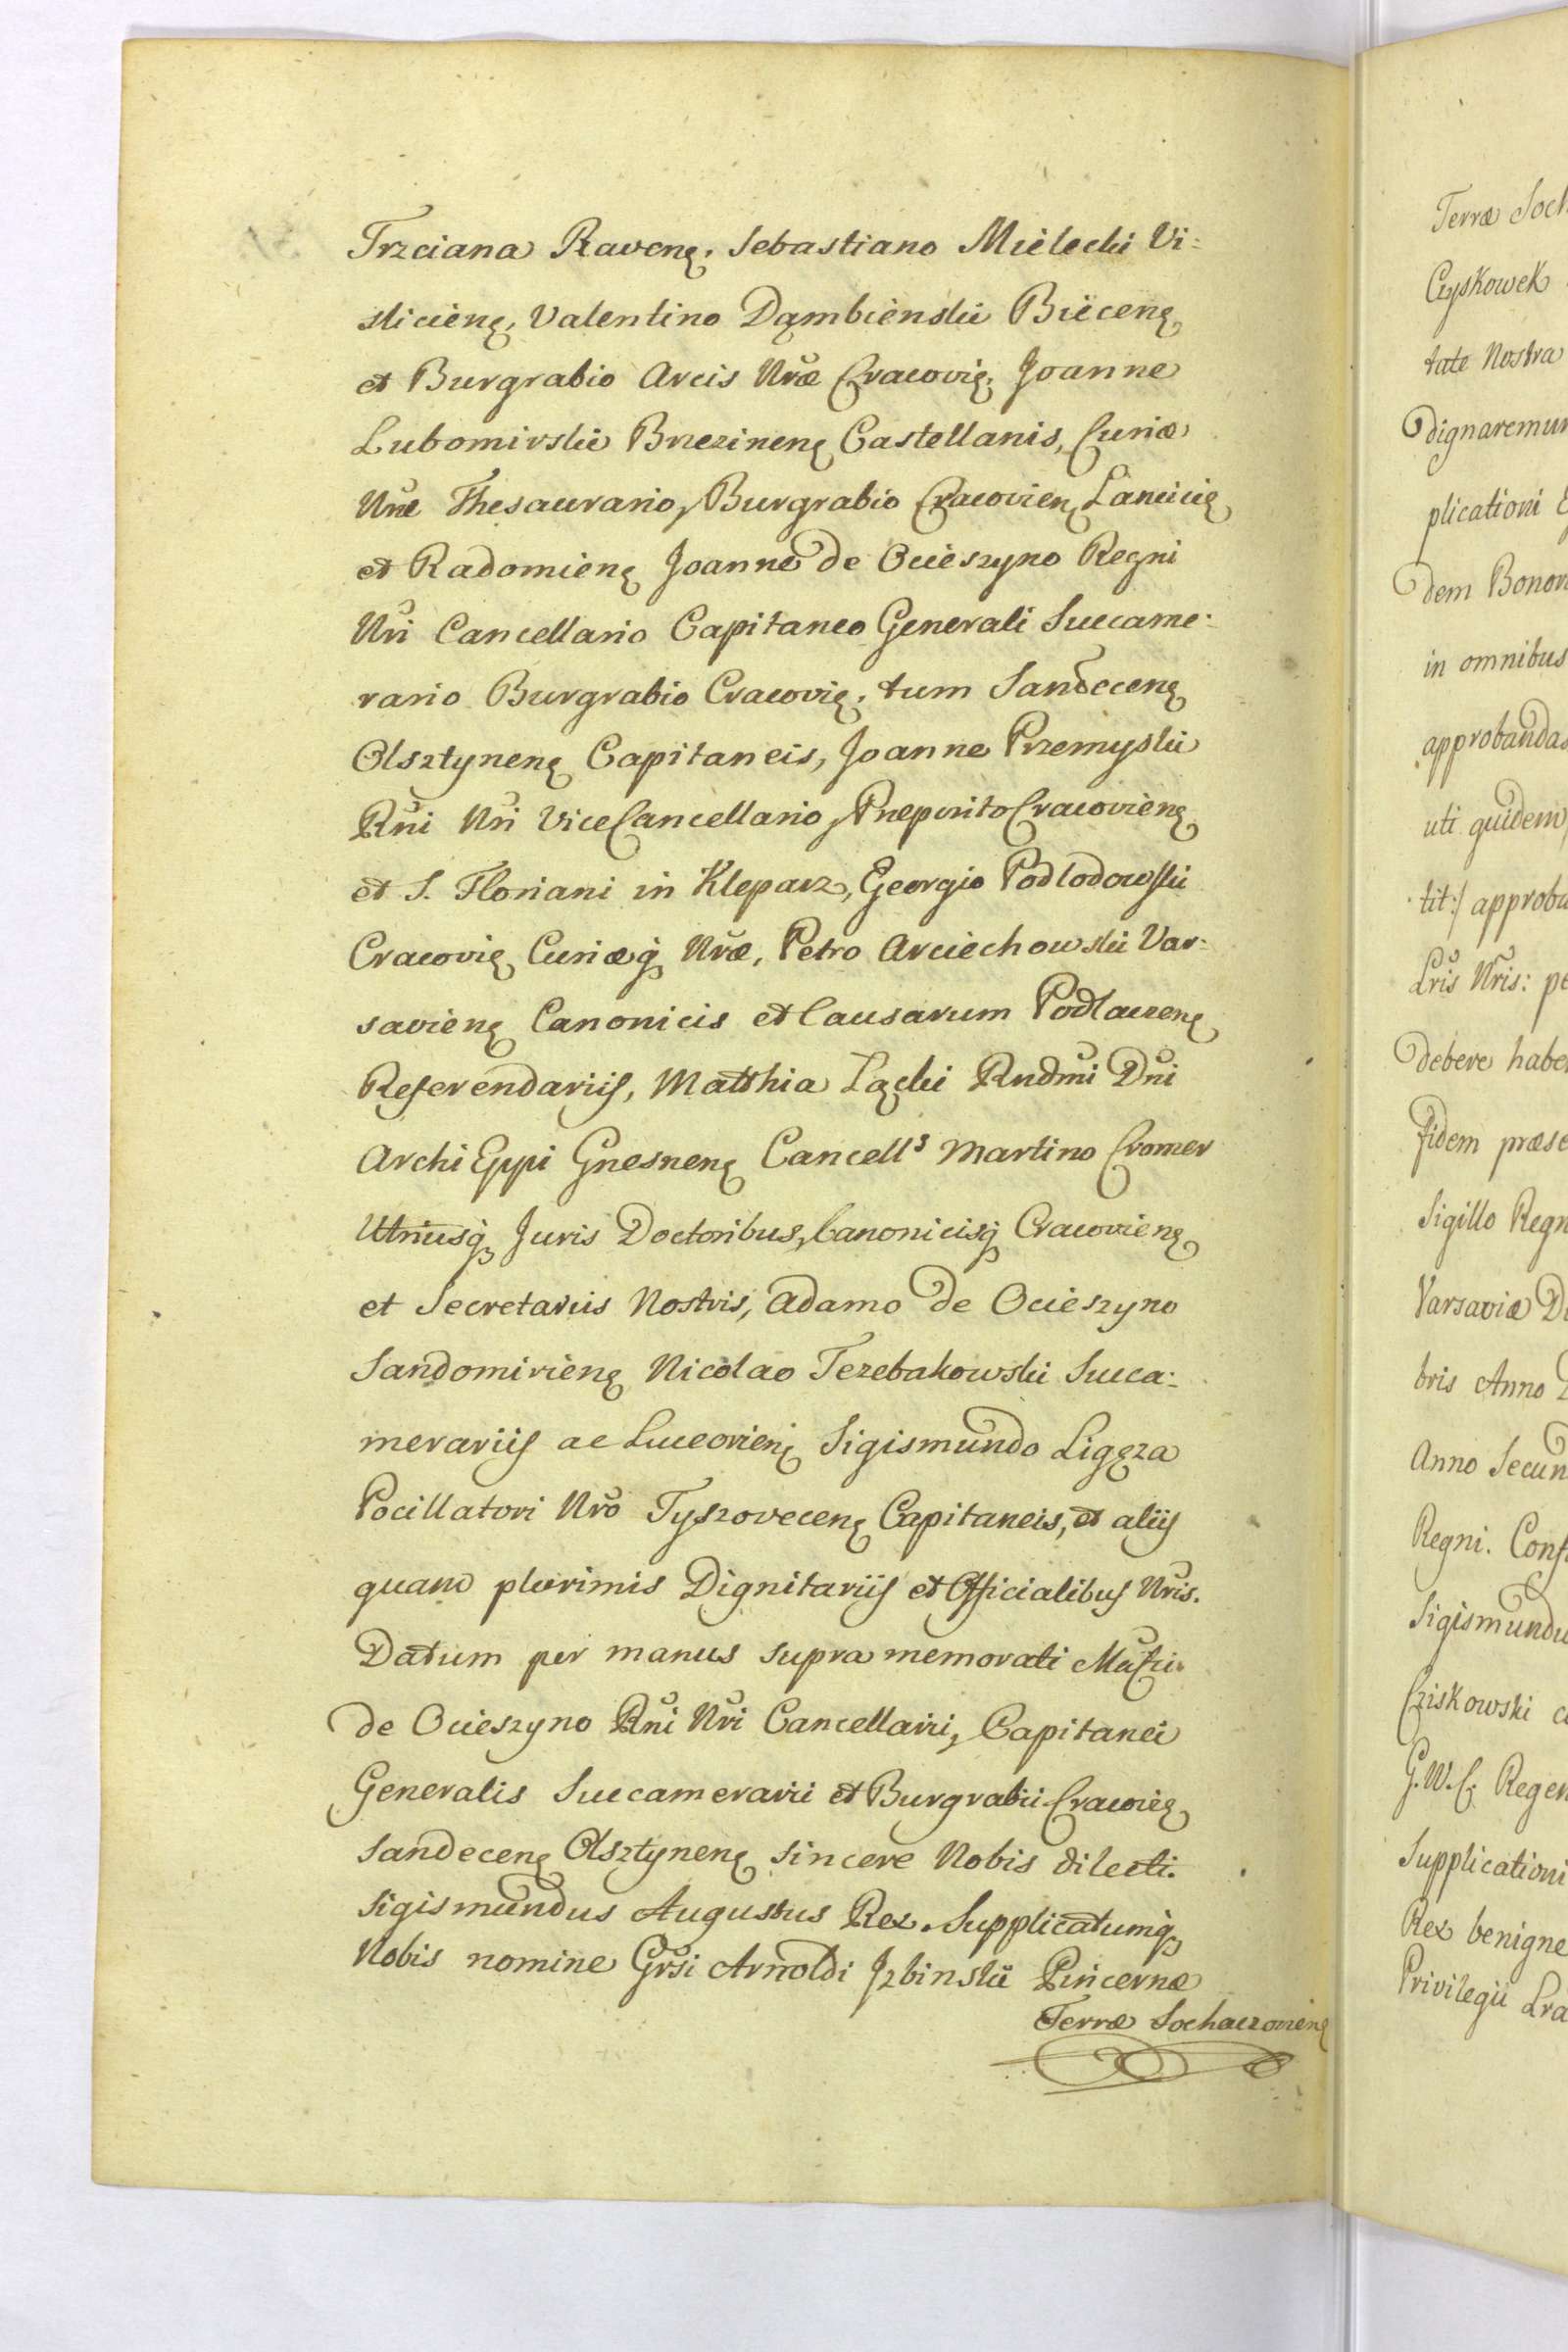 Trzciana Ravenę. Sebastiano Mielecki Vi-
sliciēnę, Valentino Dąmbienski Biecenę,
et Burgrabio Arcis Nrae Cracovię, Joanne
Lubomirski Brzezinenę Castellanis, Curiae
Nrae Thesaurario, Burgrabio Cracovienę Lancicię
et Radomienę Joanne de Ocieszyno Regni
Nri Cancellario Capitaneo Generali Succame-
rario Burgrabio Cracovię, tum Sandecenę
Olsztynenę Capitaneis, Joanne Przemyski
Rni Nri ViceCancellario, Praeposito Cracovienę
et S. Floriani in Kleparz, Georgio Podlodowski
Cracovię Curiaeq Nrae, Petro Arciechowski Var-
savienę Canonicis et Causarum Podlacenę
Referendariis, Matthia Lącki Rndmi Dni
Archi Eppi Gnesnenę Cancells Martino Cromer
Utriusq Juris Doctoribus, Canonicisq Cracovienę
et Secretariis Nostris, Adamo de Ocieszyno
Sandomirienę Nicolao Trzebakowski Succa-
merariis ac Luceorienę Sigismundo Ligęza
Pocillatori Nro Tyszovecenę Capitaneis, et aliis
quam plurimis Dignitariis et Officialibus Nris.
Datum per manus supra memorati Mgfci
de Ocieszyno Rni Nri Cancellarii, Capitanei
Generalis Succamerarii et Burgrabii Cracovię
Sandecenę Olsztynenę sincere Nobis dilecti.
Sigismundus Augustus Rex. Supplicatumq
Nobis nomine Grsi Arnoldi Jzbinski Pincernae
Terrae Sochaczovienę
Terrae Soch
Czyskowek
tate Nostra
dignaremur
plicationi
dem Bonor
in omnibus
approbandas
uti quidem
tit:/ approba
Lris Nris: pe
debere habe
fidem praese
Sigillo Regn
Varsaviae D
bris Anno
Anno Secun
Regni. Conf
Sigismundu
Cziskowski c
G.W.C. Regen
Supplicationi
Rex benigne
Privilegii Lra